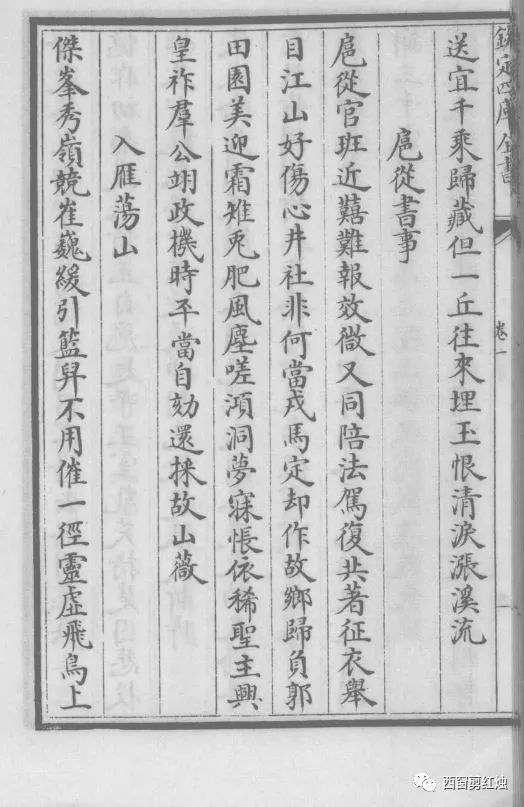 欽定四庫全書
卷一
送宜千乘歸藏但一丘往來埋玉恨清淚漲溪流
扈從書事
扈從官班近囏難報效微又同陪法駕復共著征衣舉
目江山好傷心井社非何當戎馬定却作故鄉歸負郭
田園美迎霜雉兎肥風塵嗟澒洞夢寐悵依稀聖主興
皇祚羣公翊政機時平當自劾還採故山薇
入雁蕩山
傑峯秀嶺競崔巍緩引籃舁不用催一徑靈虛飛鳥上
西窗剪红烛